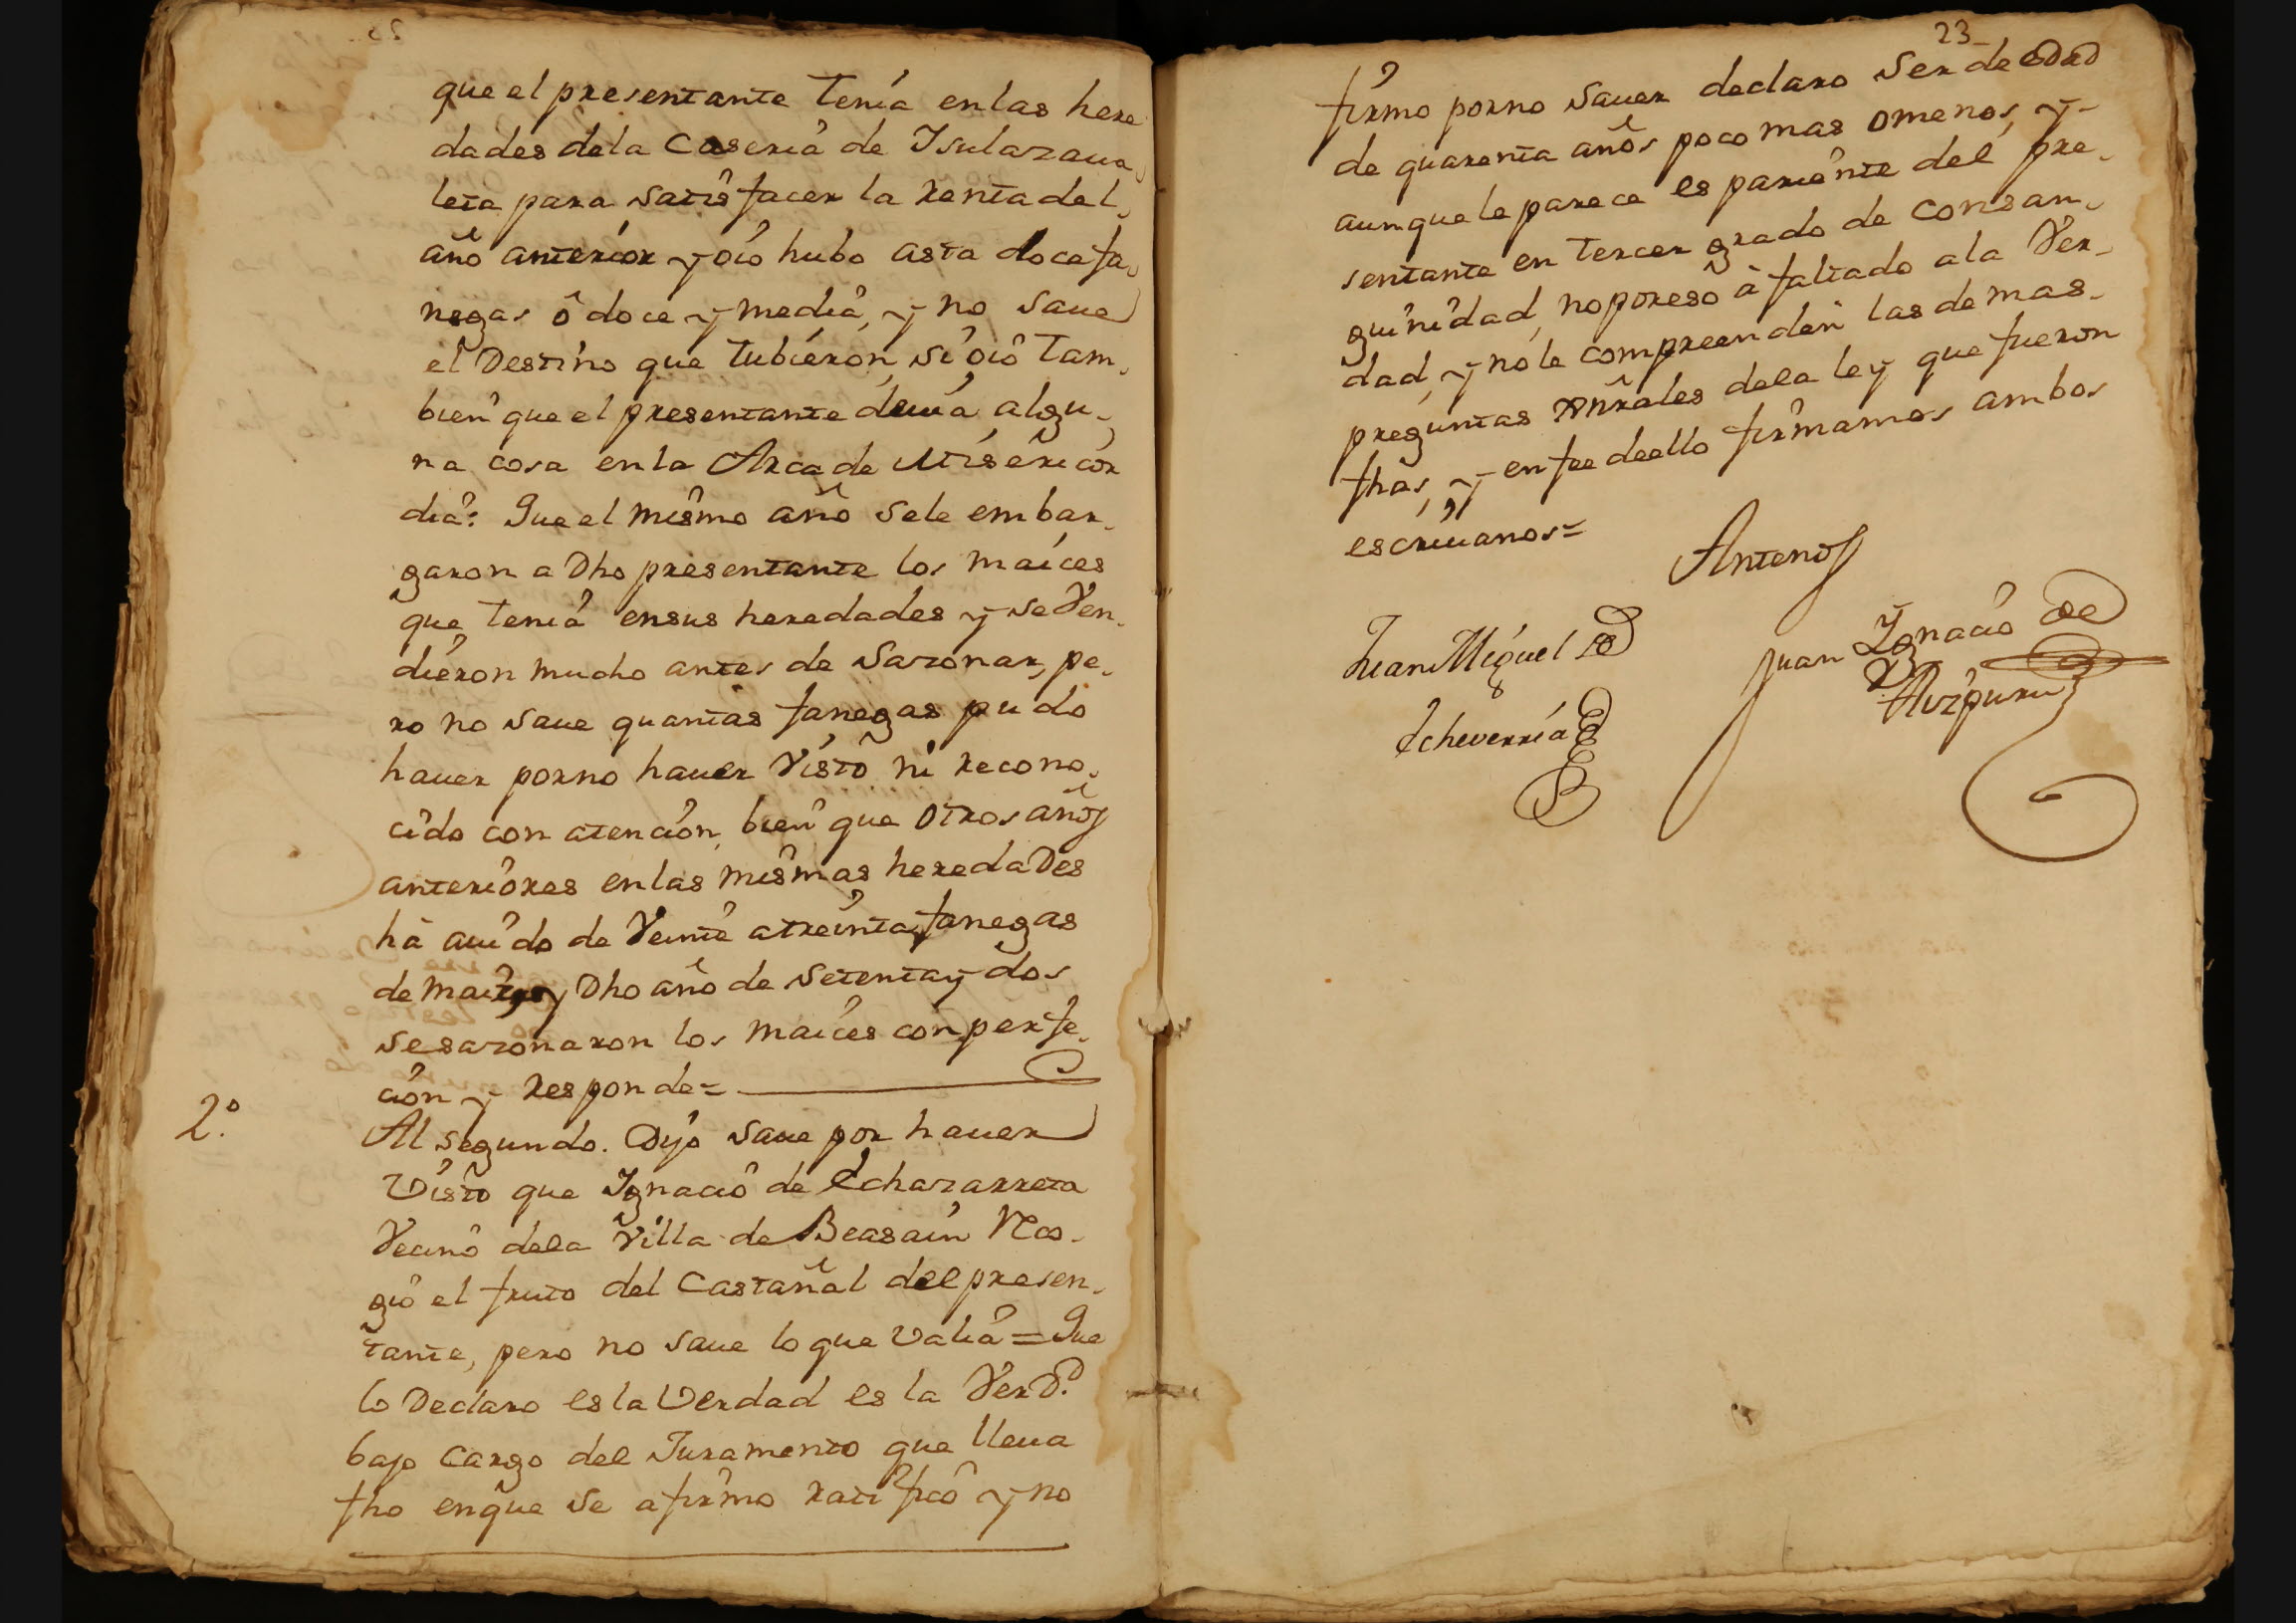 que el presentante tenia en las here
dades de la Caseria de Ysulazaua
leta para satisfacer la renta del
año anterior y oio hubo asta doce fa
negas ô doce y media, y no saue
el Destino que tubieron, si oiô tam
bien que el presentante deuia algu-
na cosa en la Arca de Misericor
dia: Que el mismo año se le embar-
garon a Dho presentante los maices
que tenia en sus heredades y se Ven-
dieron mucho antes de sazonar, pe-
ro no saue quantas fanegas pudo
hauer por no hauer Visto ni recono-
cido con atencion, bien que otros años
anteriores en las mismas heredaDes
hà auido de Veinte a treinta fanegas
de maiz, y Dho año de setenta y dos
se sazonaron los maices con perfe-
cion y responde=
2.º
Al segundo. Dijo saue por hauer
Visto que Ygnacio de Echazarreta
Vecino de la Villa de Beasain Reco-
gio el fruto del Castañal del presen-
tante, pero no saue lo que Valia = Que
lo Declaro es la Verdad es la VerD.
bajo cargo del Juramento que lleua
fho en que se afirmo ratificô y no
23
firmo por no sauer declaro ser de edad
de quarenta años poco mas o menos, y
aunque le parece es pariente del pre-
sentante en tercer grado de consan-
guinidad, no por eso à faltado a la Ver-
dad, y no le compreenden las demas
preguntas xnrales de la ley que fueron
fhas, y en fee de ello firmamos ambos
escriuanos=
Antenos
Juan Miguel de
Echeverria
Juan Ygnacio de
Aizpuru